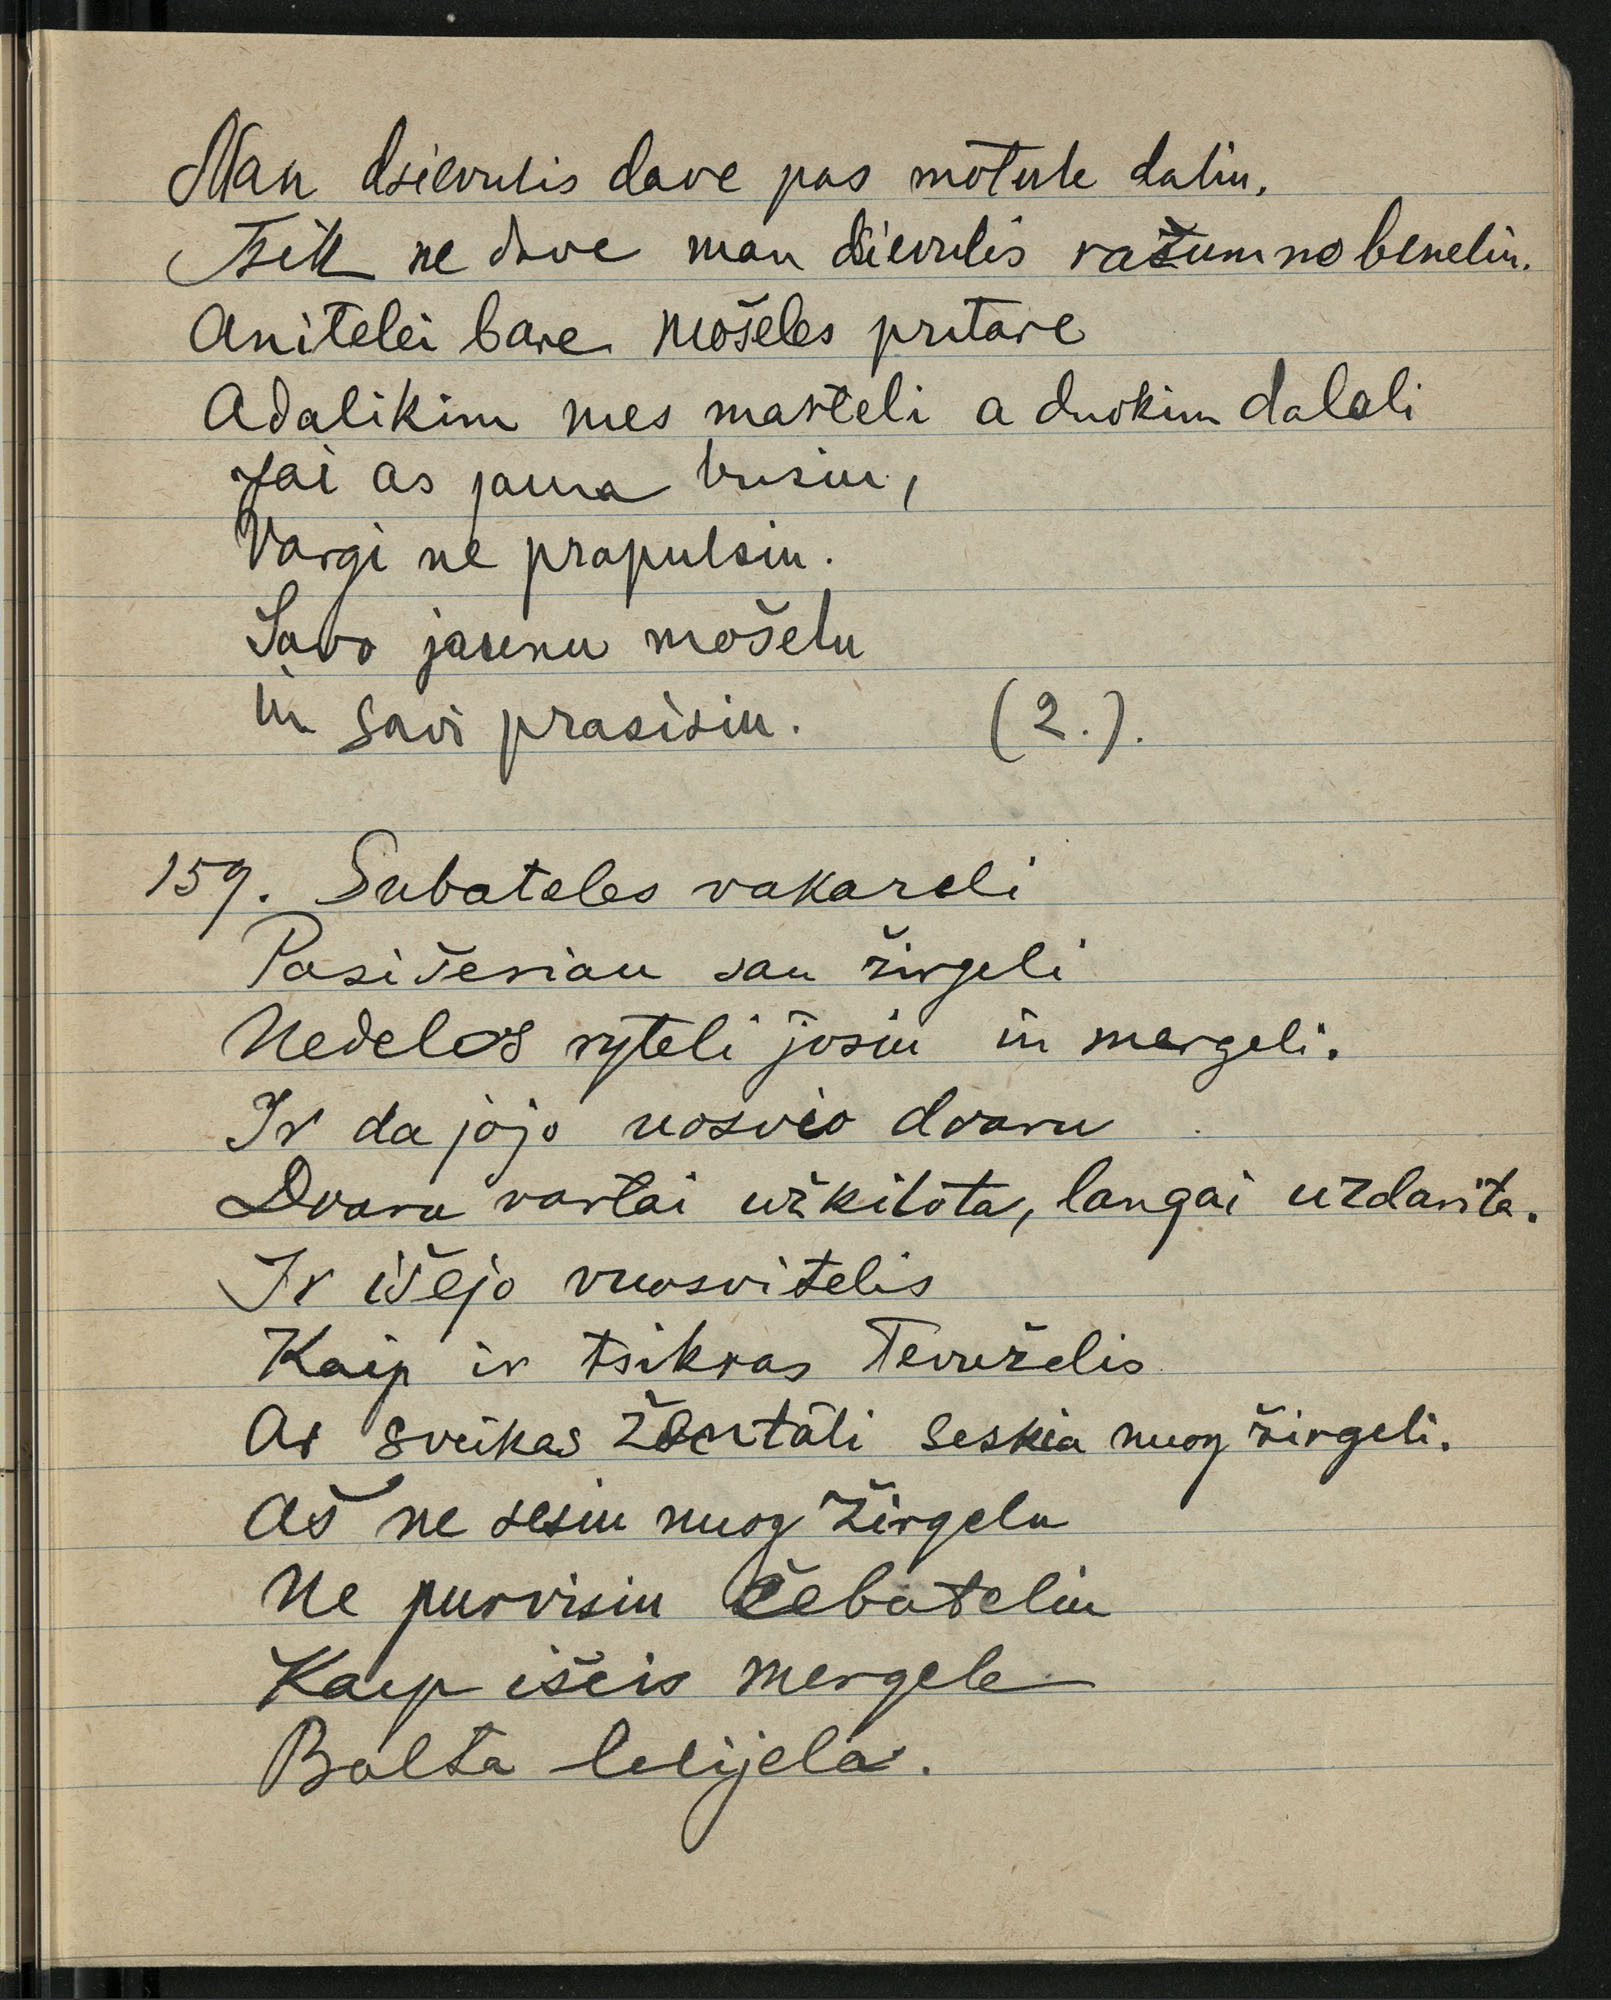 Man dsievulis dave pas motule daliu.
Tsik ne dave man dsievulis razumno beneliu.
Anitelei bare mošeles pritare
Adalikim mes marteli a duokim daleli
Jai as jauna busiu,
Vargi ne prapulsiu.
Savo jaunu mošelu
in savi prasisiu. (2.).
159. Subateles vakareli
Pasišeriau sau žirgeli
Nedelos ryteli josiu in mergeli.
Ir da jojo uosvio dvaru
Dvaru vartai užkilota, langai uzdarita.
Ir išejo vuosvitelis
Kaip ir tsikras Tevuželis
Ar sveikas žentäli seskia nuog žirgeli.
Aš ne sesiu nuog žirgelu
Ne purvisiu čebateliu
Kaip išeis mergele
Balta lelijela.